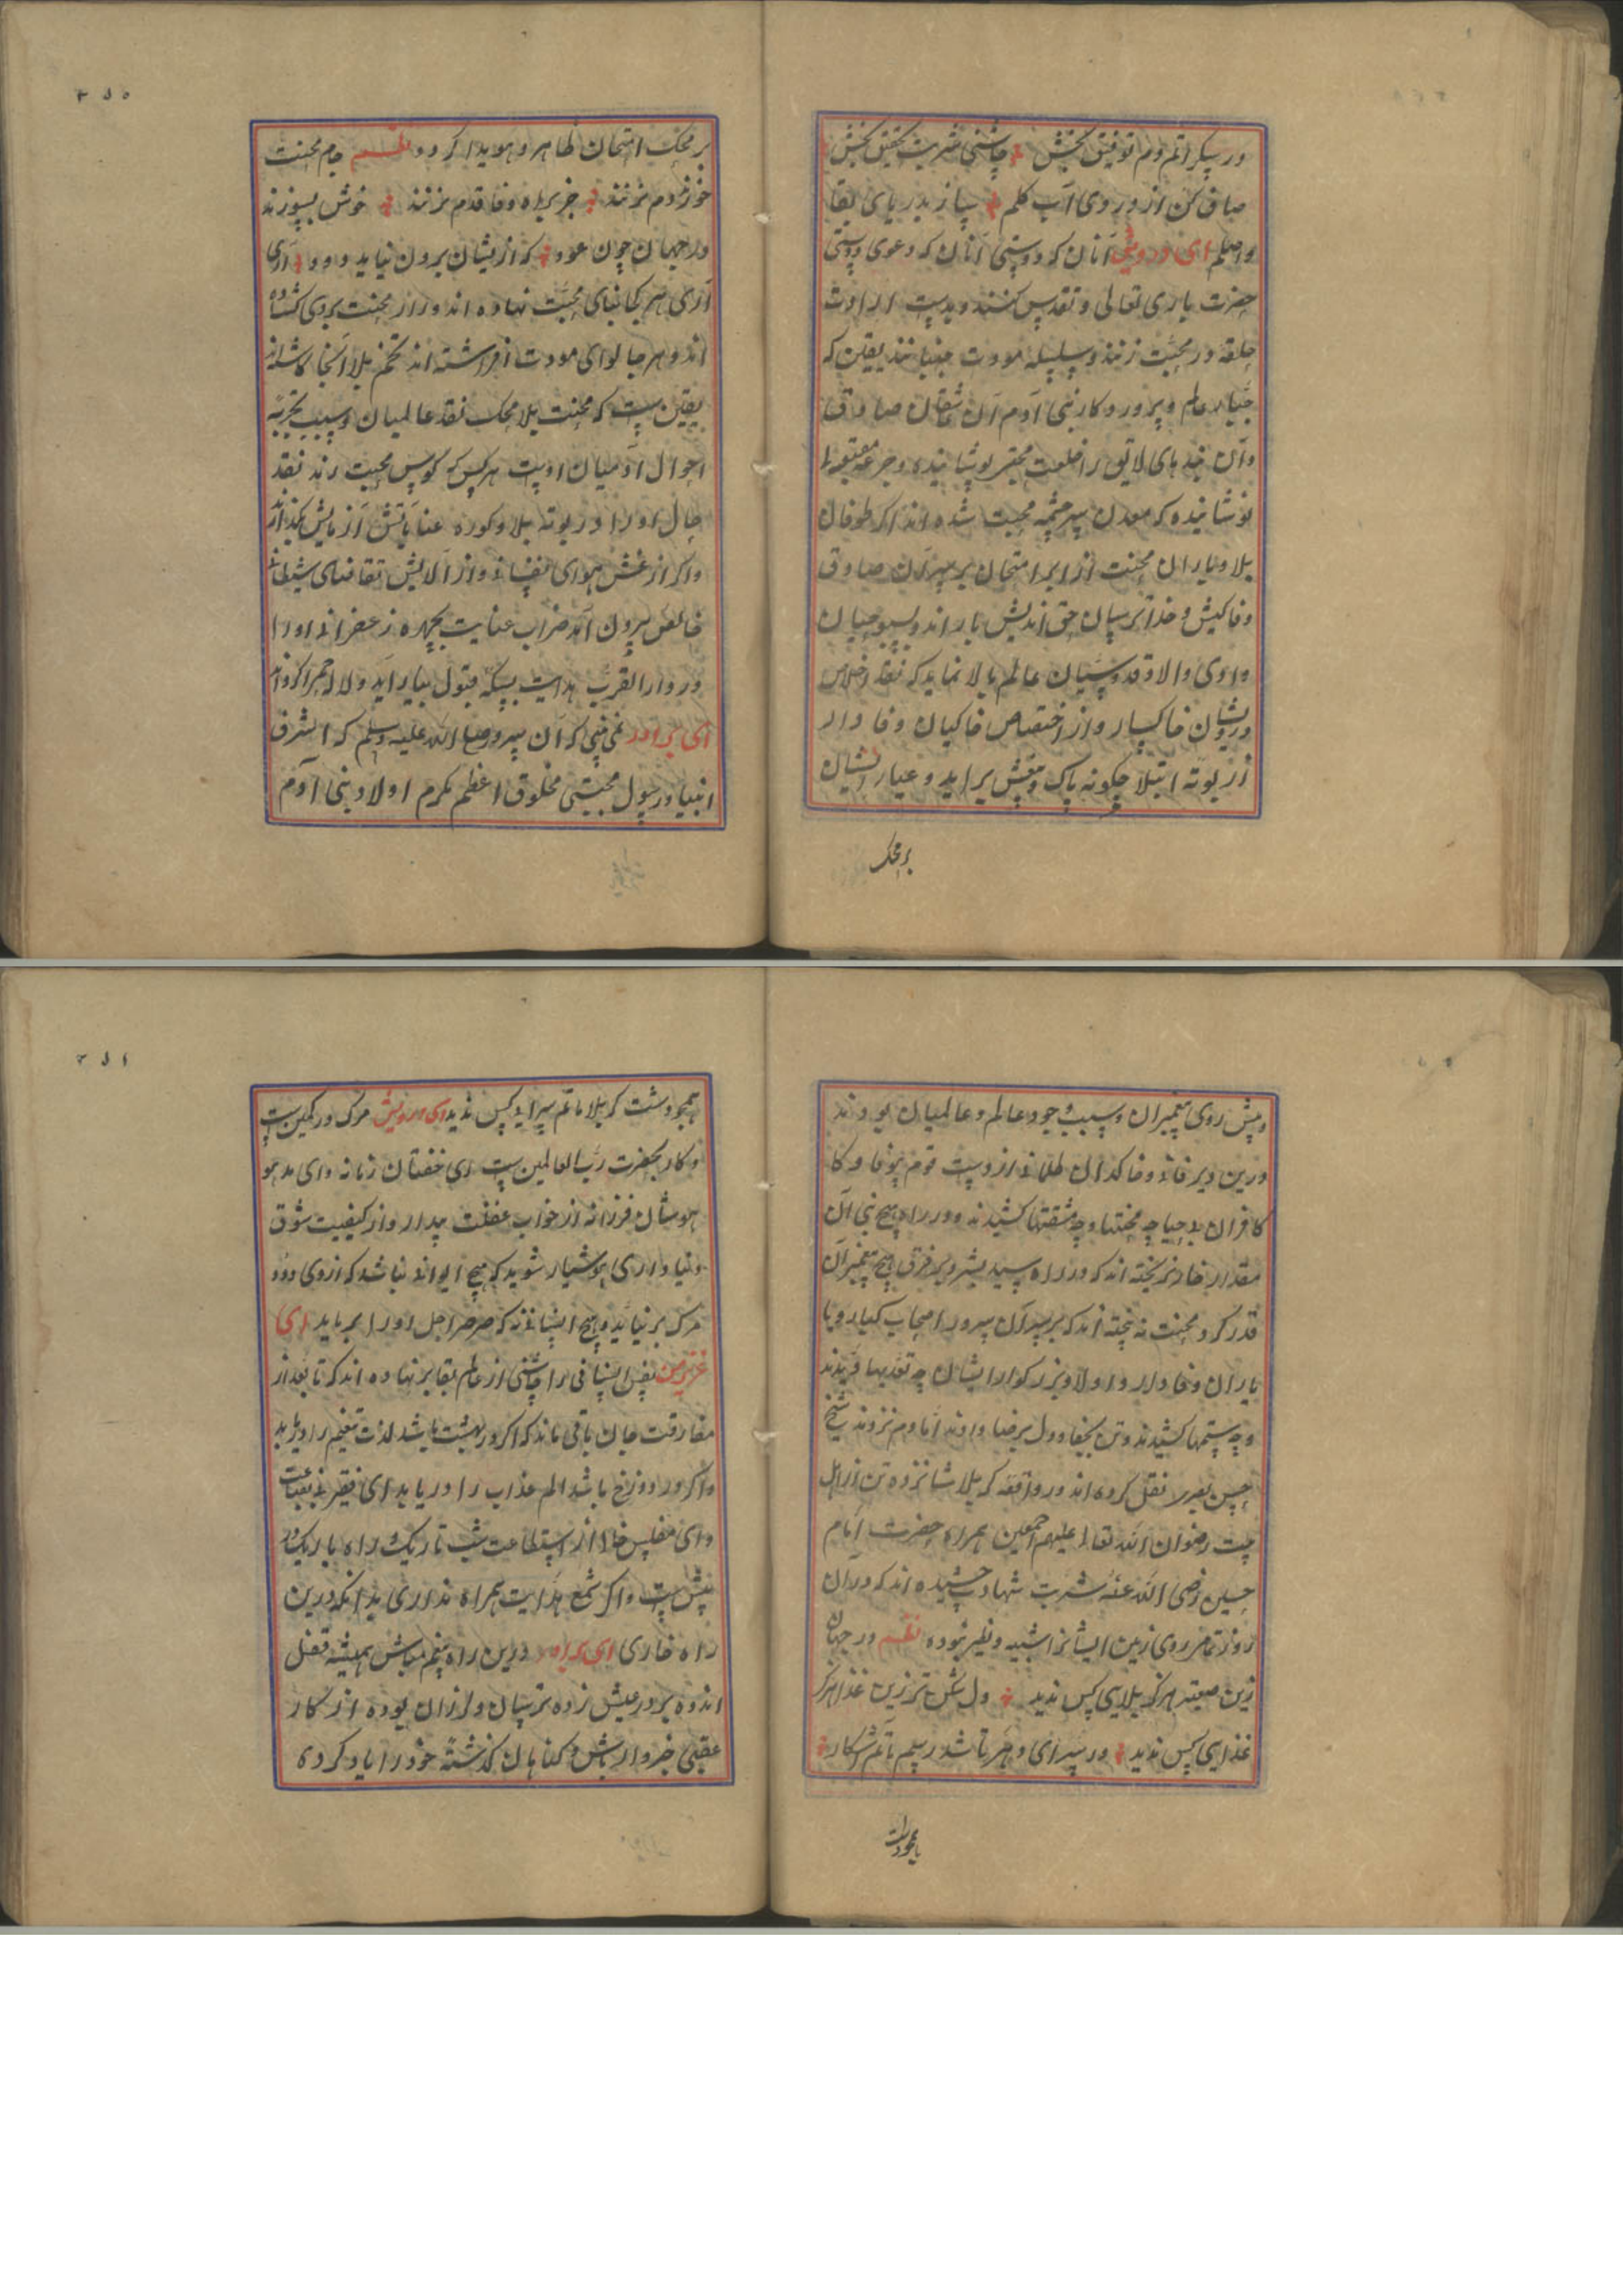 در پیکر اتم دم توفیق بخش چاشنی شربت تحقیق بخش
صاف کن از دردی آب کلم ساز بدریای بقا
واصلم ای درویش آنان که دوستی آنان که دعوی دوستی
حضرت باری تعالی و تقدس کنند و بدست ارادت
حلقه در محبت زنند و سلسله مودت جنبانند یقین که
جبار عالم و پروردکار بنی آدم آن عاشقان صادق
وآن بنده های لایق را خلعت پوشانیده و جرعه
نوشانیده که معدن سرچشمه محبت شده اند اکر طوفان
بلا و باران محنت از ابر امتحان بر سر آن صادق
وفا کیش و خدا ترسان حق اندیش باراند و بسبوحیان
وادی والا و قدوسیان عالم بالا نماید که نقد اخلاص
درویشان خاکسار و از اختصاص خاکیان وفادار
از بوته ابتلا چکونه پاک و بیغش براید و عیار ایشان
بر محک
بر محک امتحان ظاهر و هویدا کردد نظم جام محنت
خورد و دم نزنند جز براه وفا قدم نزنند خوش بسوزند
در جهان چون عود که ازیشان برون نیاید دود آری
آری هر کجا بنای محبت نهاده اند در از محنت بروی کشاده
اند و هر جا لوای مودت افراشته اند تخم بلا آنجا کاشته اند
یقین ست که محنت بلا محک نقد عالمیان و سبب تجربه
احوال آدمیان اوست هر کس که کوس محبت زند نقد
حال او را در بوته بلا و کوره عنا بآتش آزمایش بکذارند
واکر از غش هوای نفسانی و از آلایش تقاضای شیطانی
خالص بیرون آمد ضراب عنایت چهره زعفرانی او را
در دار القرب هدایت بسکه قبول بیاراید و لاله حمرا کرداند
ای برادر نمی بینی که آن سرور صلی الله علیه وسلم که اشرف
انبیا و رسول مجتبی مخلوق اعظم مکرم اولاد بنی آدم
و پیش روی پیغمبران و سبب وجود عالم و عالمیان بودند
درین دیر فانی و خاکدان ظلمانی از دست قوم بیوفا و کا
کافران بی حیا چه محنتها و چه مشقتها کشیدند و در راه هیچ نبی آن
مقدار خار نریخته اند که در راه سید بشر و بر فرق هیچ پیغمبر آن
قدر کرد محنت نه بیخته اند که بر سر آن سرور اصحاب کبار و با
یاران وفادار و اولاد بزرکوار ایشان چه تعدیها دیدند
و چه ستمها کشیدند و تن بجفا و دل برضا دادند اما دم نزدند شیخ
حسن بصری نقل کرده اند در واقعه کربلا شانزده تن از اهل
بیت رضوان الله تعالی علیهم اجمعین همراه حضرت امام
حسین رضی الله عنه شربت شهادت چشیده اند که در آن
روز تمام روی زمین ایشانرا شبیه و نظیر نبوده نظم در جهان
زین صعبتر هرکز بلایی کس ندید دل شکن تر زین عذا هرکز
عذایی کس ندید در سرای دهر تا شد رسم ماتم آشکار
همچو دشت
همچو دشت کربلا ماتم سرای کس ندید ای درویش مرک در کمین ست
و کار بحضرت رب العالمین ست ای خفتان زمانه وای مدهو
هوشان فرزانه از خواب غفلت بیدار و از کیفیت شوق
دنیا داری هوشیار شوید که هیچ ایوانی نباشد که از وی دود
مرک برنیاید و هیچ انسانی نه که صرصر اجل او را برباید ای
عزیز من نفس انسانی را چاشنی از عالم بقا بر نهاده اند که تا بعد از
مفارقت جان باقی ماند که اکر در بهشت باشد لذت تنعیم را دریابد
واکر در دوزخ باشد الم عذاب را دریابد ای فقیر بی بضاعت
وای مفلس خالی از استطاعت شب تاریک و راه باریک در
پیش ست واکر شمع هدایت همراه نداری بدانکه درین
راه خاری ای برادر درین راه مباش همیشه قفل
اندوه بر در عیش زده ترسان و لرزان بوده از کار
عقبی خبردار باش و کناهان کذشته خود را یاد کرده